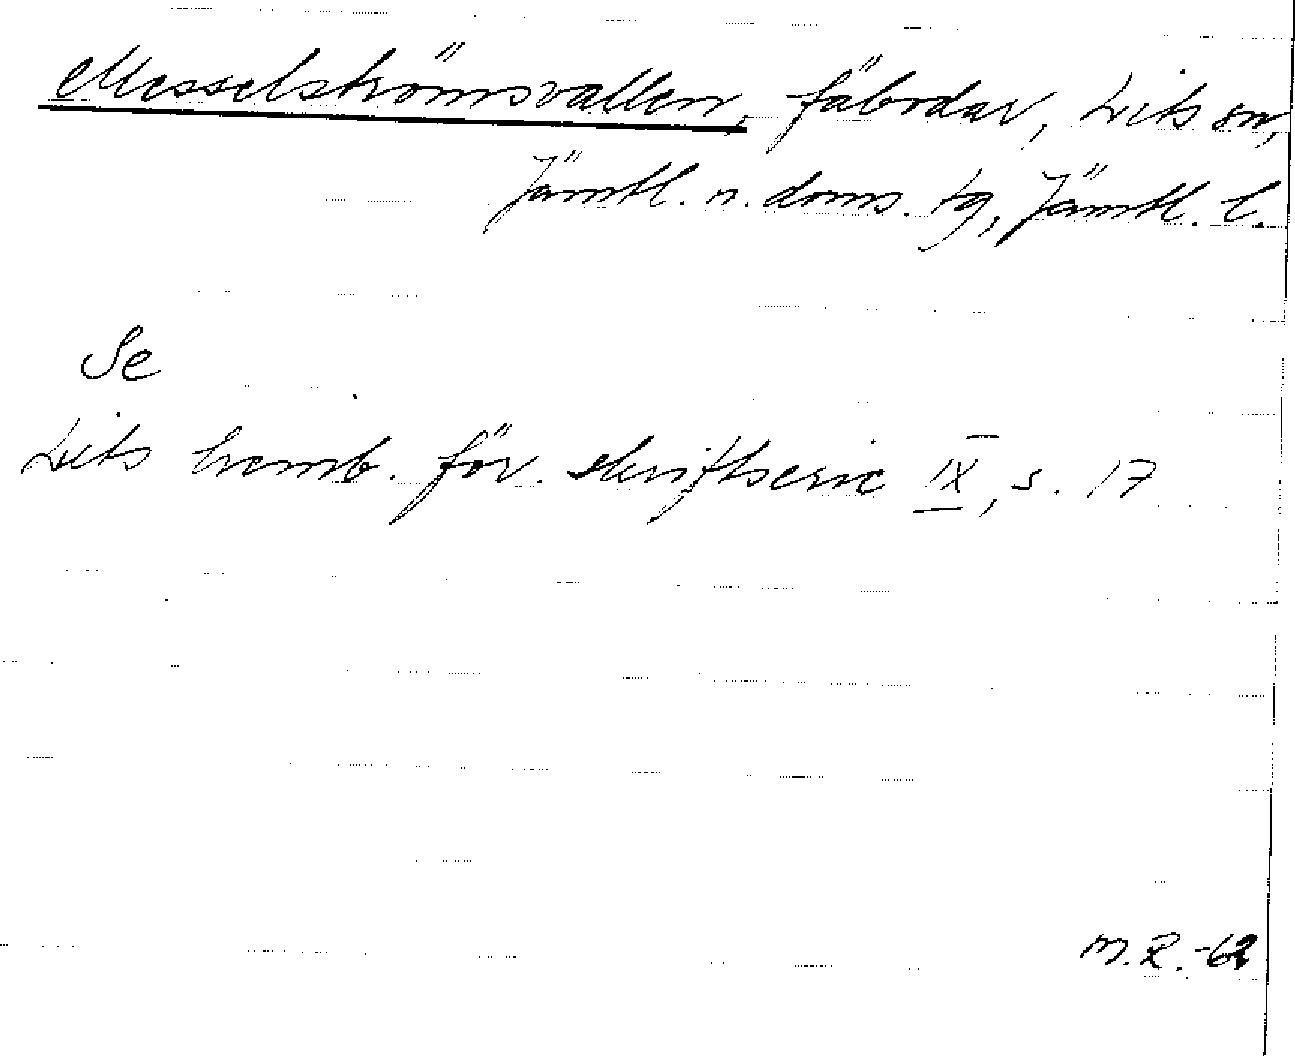 Messelströmsvallen, fäbodar, Lits sn,
Jämtl. n. doms. tg, Jämtl. l.
Se
Lits hemb. för. skriftserie IX, s. 17
M.R.-62